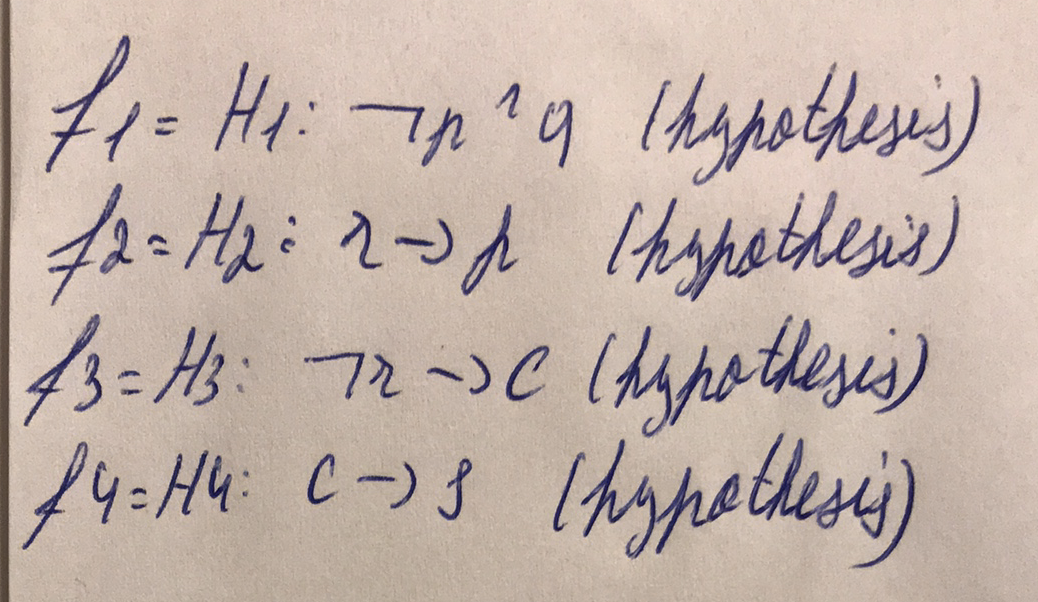 f1 = H1: ¬p ^ q (hypothesis)
f2 = H2: r → p (hypothesis)
f3 = H3: ¬r → c (hypothesis)
f4 = H4: c → s (hypothesis)